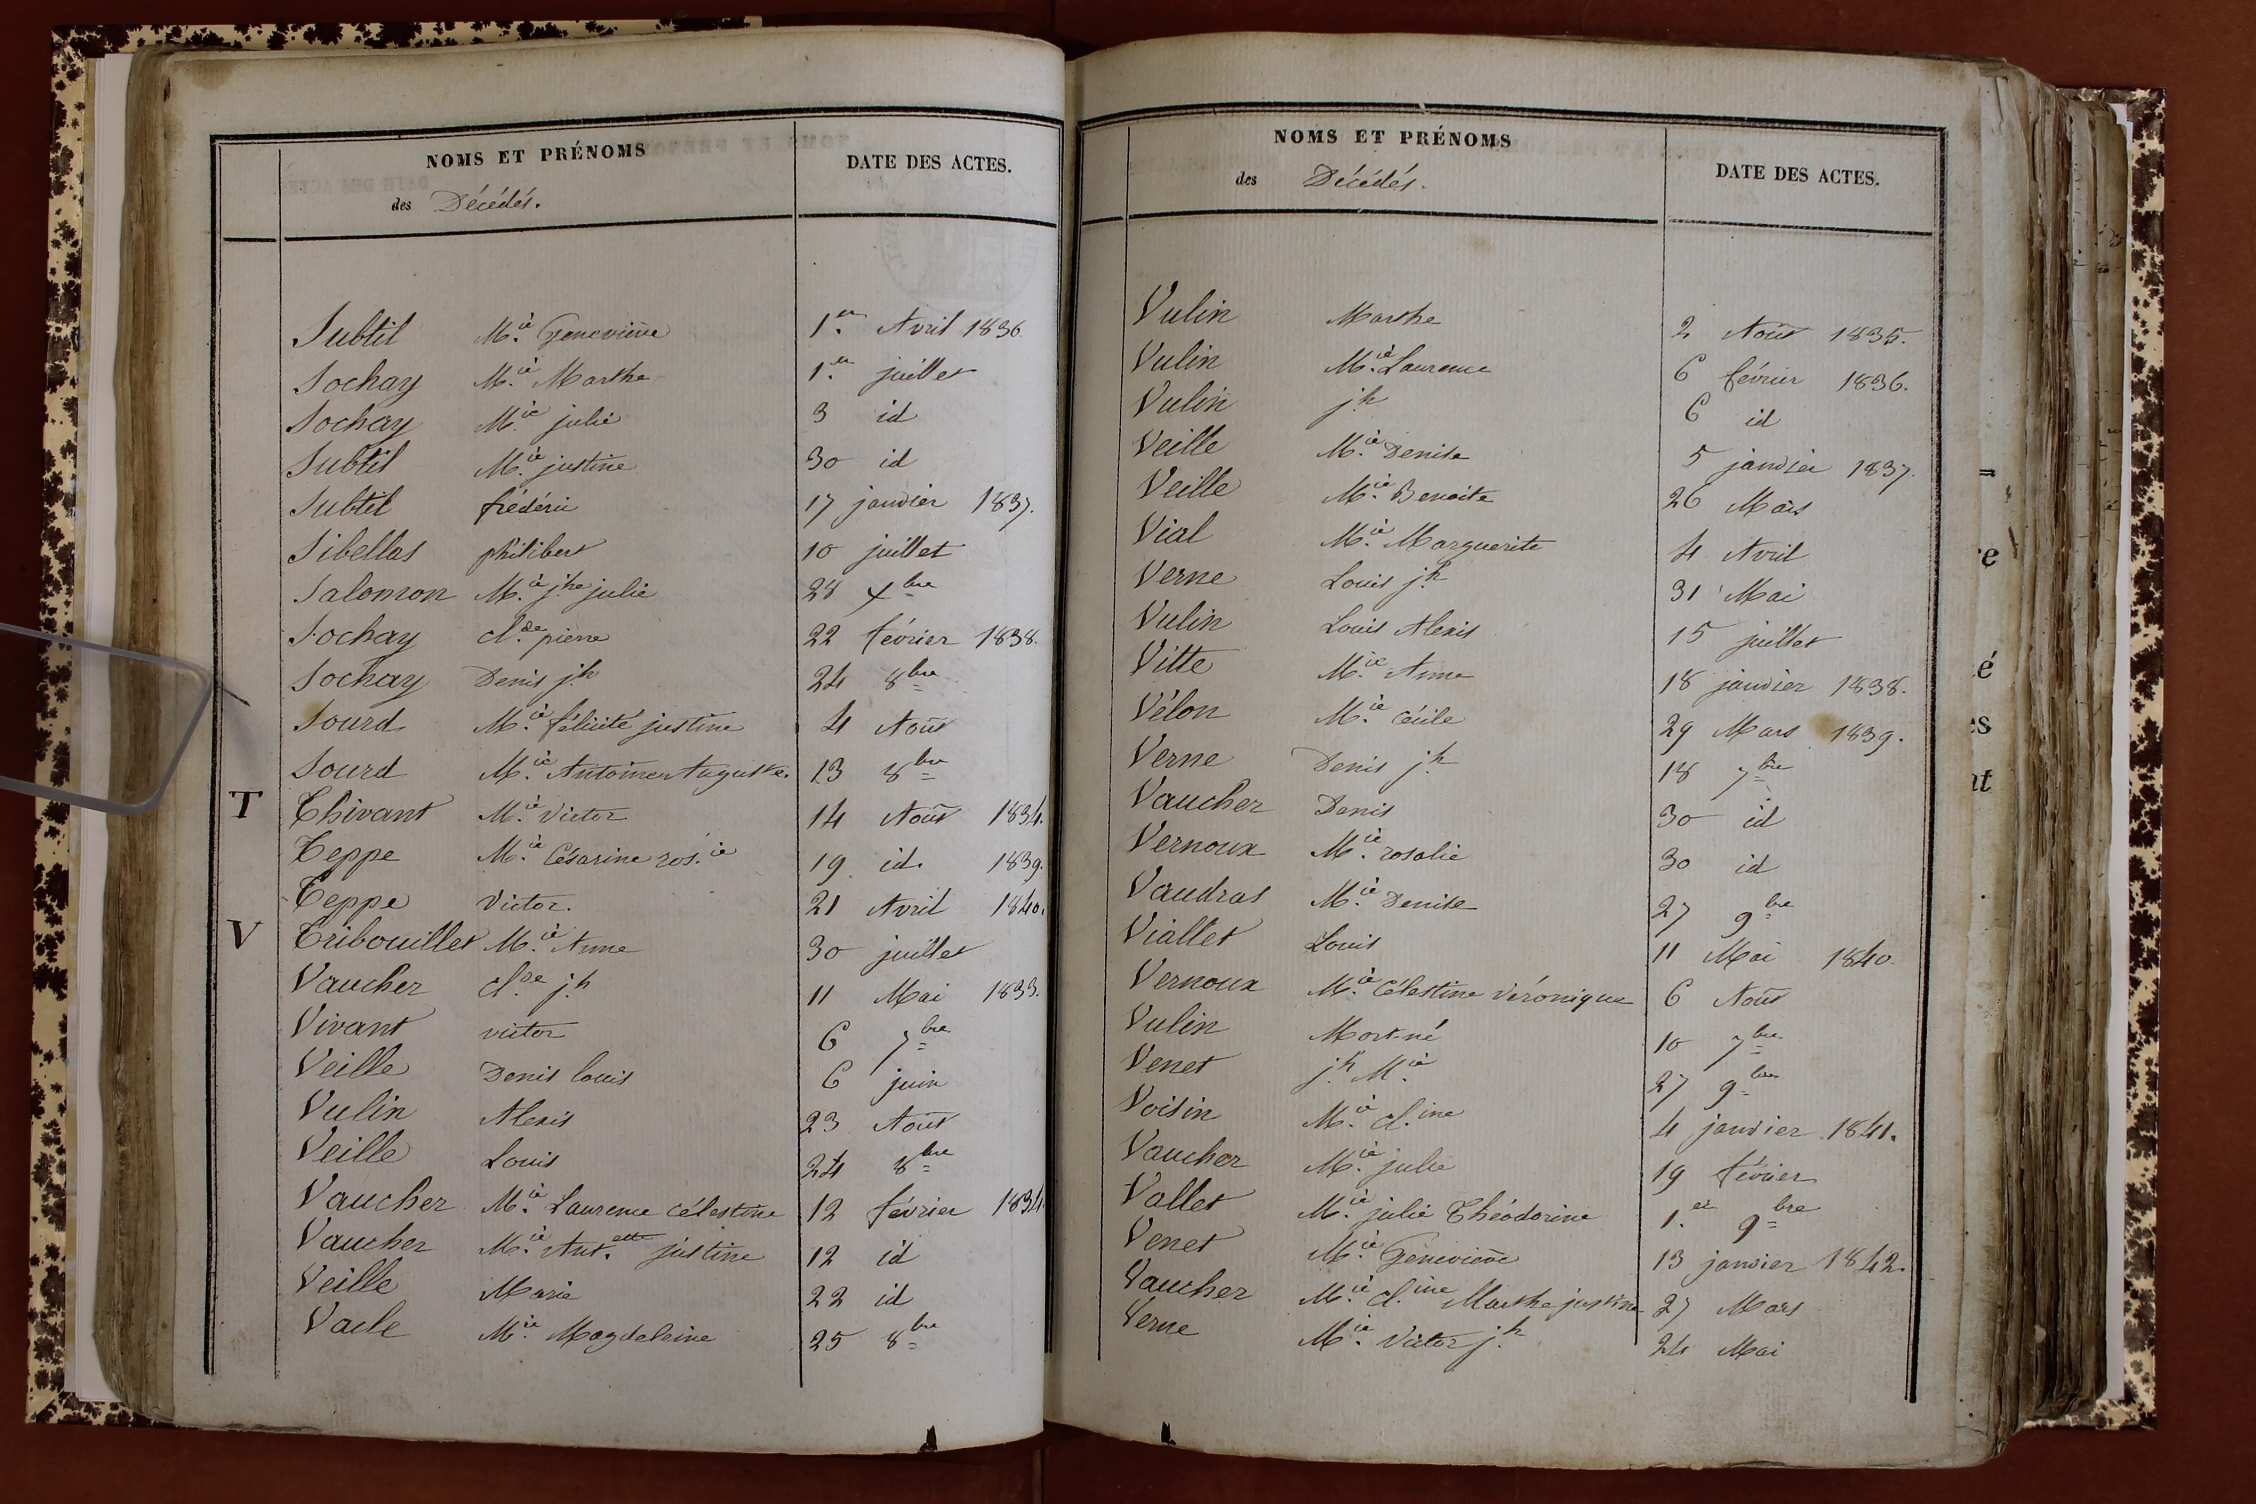 NOMS ET PRÉNOMS
DATE DES ACTES.
des Décédés.
Subtil M.ie Geneviève 1.er Avril 1836.
Sochay M.ie Marthe 1.er juillet
Sochay M.ie julie 3 id
Subtil M.ie justine 30 id
Subtil frédéric 17 janvier 1837.
Sibellas philibert 10 juillet
Salomon M.ie j.he julie 28 Xbre
Sochay cl.de pierre 22 février 1838.
Sochay Denis j.h 24 8bre
Sourd M.ie félicité justine 4 Août
Sourd M.ie Antoine Auguste. 13 8bre
T Thivant M.ie Victor 14 Août 1834.
Teppe M.ie Césarine ros.ie 19 id. 1839.
Teppe Victor. 21 Avril 1840.
V Tribouillet M.ie Anne 30 juillet
Vaucher cl.de j.h 11 Mai 1833.
Vivant victor 6 7bre
Veille Denis louis 6 juin
Vulin Alexis 23 Août
Veille Louis 24 8bre
Vaucher M.ie Laurence Célestine 12 février 1834.
Vaucher M.ie Ant.ette justine 12 id
Veille Marie 22 id
Vacle M.ie Magdeleine 25 8bre
NOMS ET PRÉNOMS
DATE DES ACTES.
des Décédés.
Vulin Marthe 2 Août 1835.
Vulin M.ie Laurence 6 février 1836.
Vulin j.h 6 id
Veille M.ie Denise 5 janvier 1837.
Veille M.ie Benoite 26 Mars
Vial M.ie Marguerite 4 Avril
Verne Louis j.h 31 Mai
Vulin Louis Alexis 15 juillet
Vitte M.ie Anne 18 janvier 1838.
Vélon M.ie Cécile 29 Mars 1839.
Verne Denis j.h 18 7bre
Vaucher Denis 30 id
Vernoux M.ie rosalie 30 id
Vaudras M.ie Denise 27 9bre
Viallet Louis 11 Mai 1840.
Vernoux M.ie Célestine Véronique 6 Août
Vulin Mort-né 10 7bre
Venet j.h M.ie 27 9bre
Voisin M.ie cl.ine 4 janvier 1841.
Vaucher M.ie julie 19 février
Vallet M.ie julie Théodorine 1.er 9bre
Venet M.ie Geneviève 13 janvier 1842.
Vaucher M.ie cl.ine Marthe justine 27 Mars
Verne M.ie Victor j.h 24 Mai